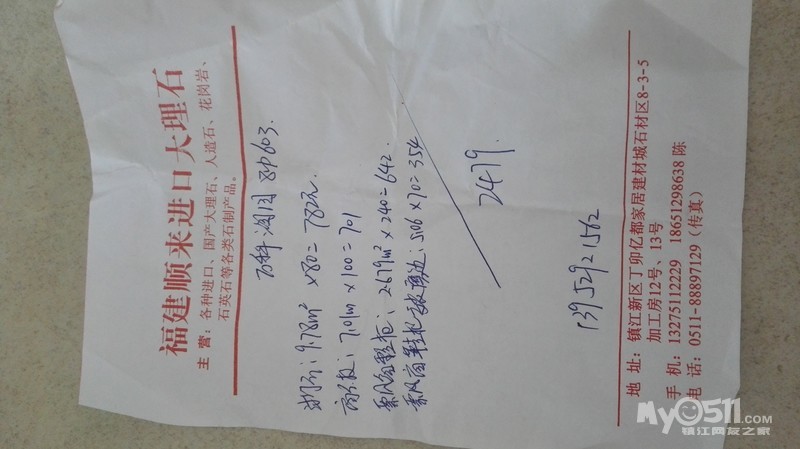 福建顺来进口大理石
主 营：各种进口、国产大理石、人造石、花岗岩、
石英石等各类石制产品。
万科 润园 8D603.
9.78m² ×80= 782元
7.01m ×100= 701
2.679m² ×240=642.
5.06 ×70=354
2479.
13952921562
地 址：镇江新区丁卯亿都家居建材城石材区8-3-5
加工房12号、13号
手 机：13275112229 18651298638 陈
电 话：0511-88897129（传真）
My0511.com
镇江网友之家